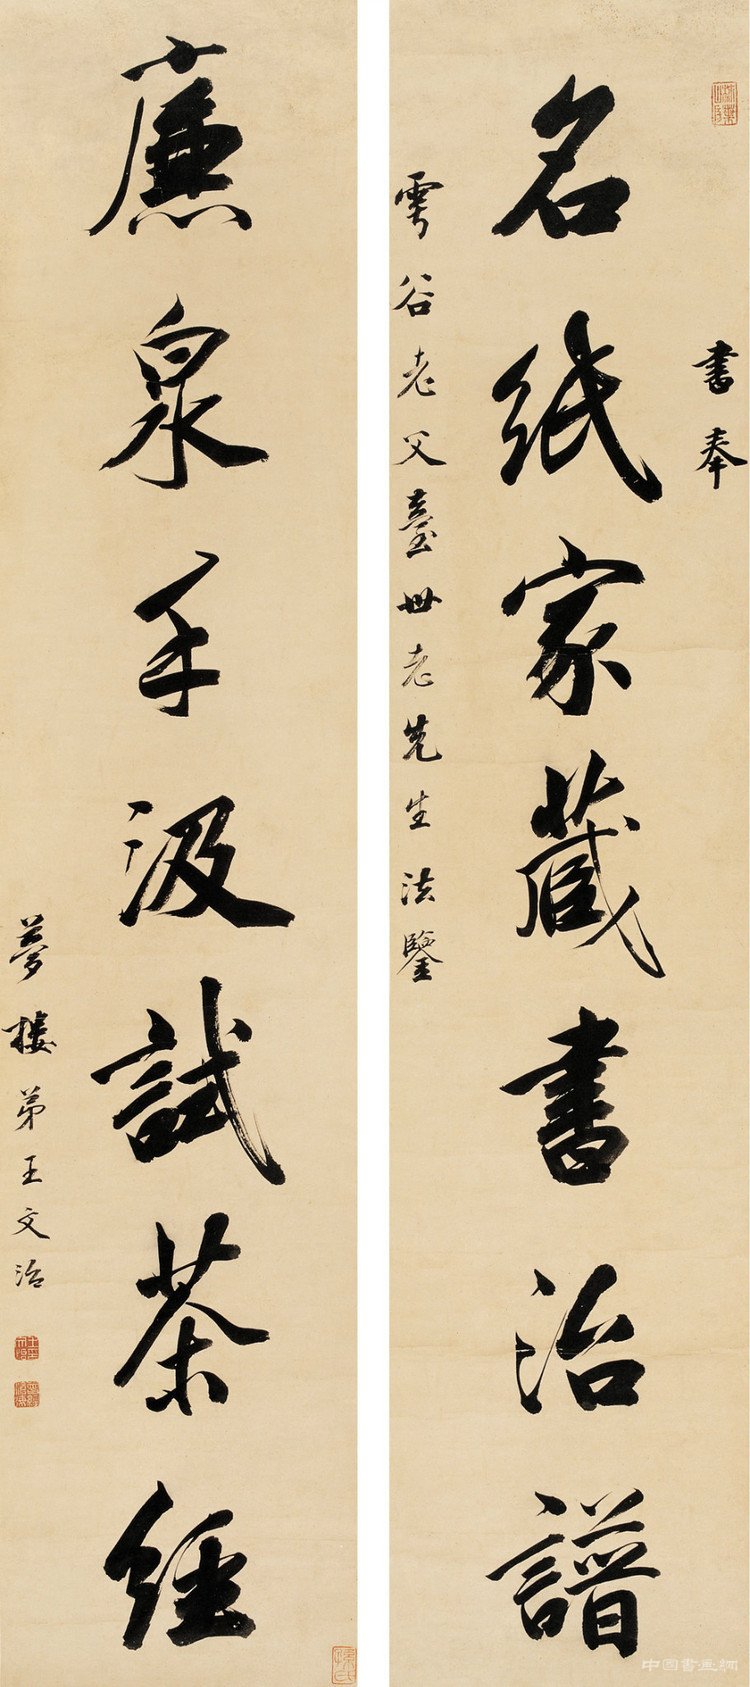 書奉
名紙家藏書治譜
雲谷老父臺世老先生法鑒
廉泉手汲試茶經
夢樓弟王文治
中國書畫網